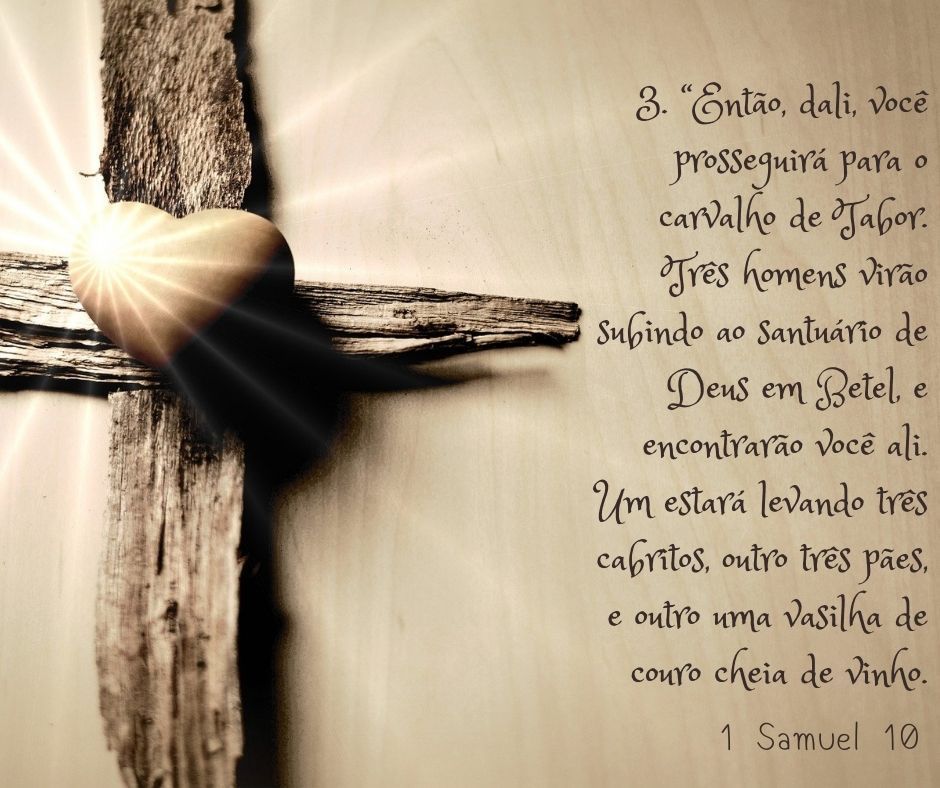 3. “Então, dali, você
prosseguirá para o
carvalho de Tabor.
Três homens virão
subindo ao santuário de
Deus em Betel, e
encontrarão você ali.
Um estará levando três
cabritos, outro três pães,
e outro uma vasilha de
couro cheia de vinho.
1 Samuel 10